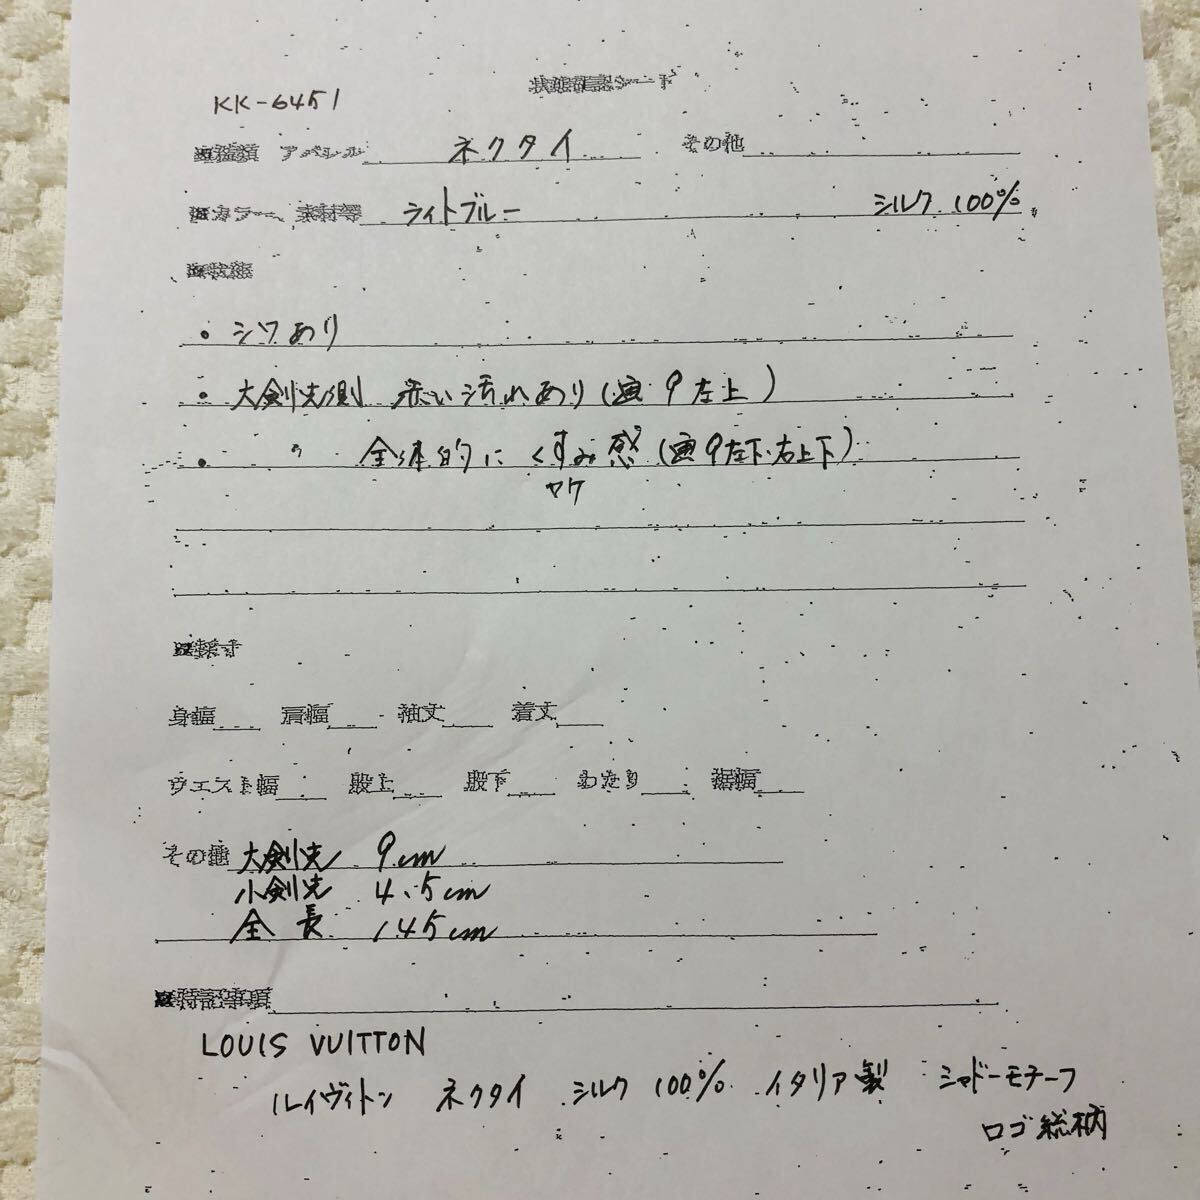 状態確認シート
KK-6451
種類 アパレル ネクタイ その他
カラー、素材等 ライトブルー シルク 100%
状態
• シワあり
• 大剣先側 赤い汚れあり(画9左上)
• 〃 全体的に くすみ感(画9左下・右上下)
ヤケ
採寸
身幅 肩幅 袖丈 着丈
ウエスト幅 股上 股下 わたり 裾幅
その他 大剣先 9cm
小剣先 4.5cm
全長 145cm
特記事項
LOUIS VUITTON
ルイヴィトン ネクタイ シルク 100% イタリア製 シャドーモチーフ
ロゴ総柄